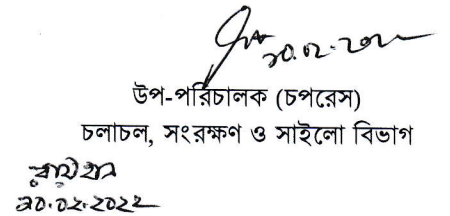 ২০.০২.২০২২
উপ-পরিচালক (চপরেস)
চলাচল, সংরক্ষণ ও সাইলো বিভাগ
২০.০২.২০২২